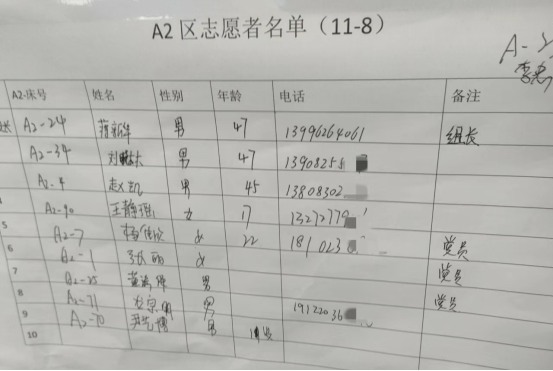 A2区志愿者名单（11-8）
A-2
A2-床号 姓名 性别 年龄 电话 备注
A2-24 蒋新华 男 47 13996264061 组长
A2-34 刘 男 47 13908258
A2-4 赵凯 男 45 13808302
A2-90 王静 女 17 13272779
5 A2-7 杨 女 22 181023 党员
6 A2-1 女 党员
7 A2-25 黄 男 党员
8 A2-71 男 19122036
9 A2-70 男
10